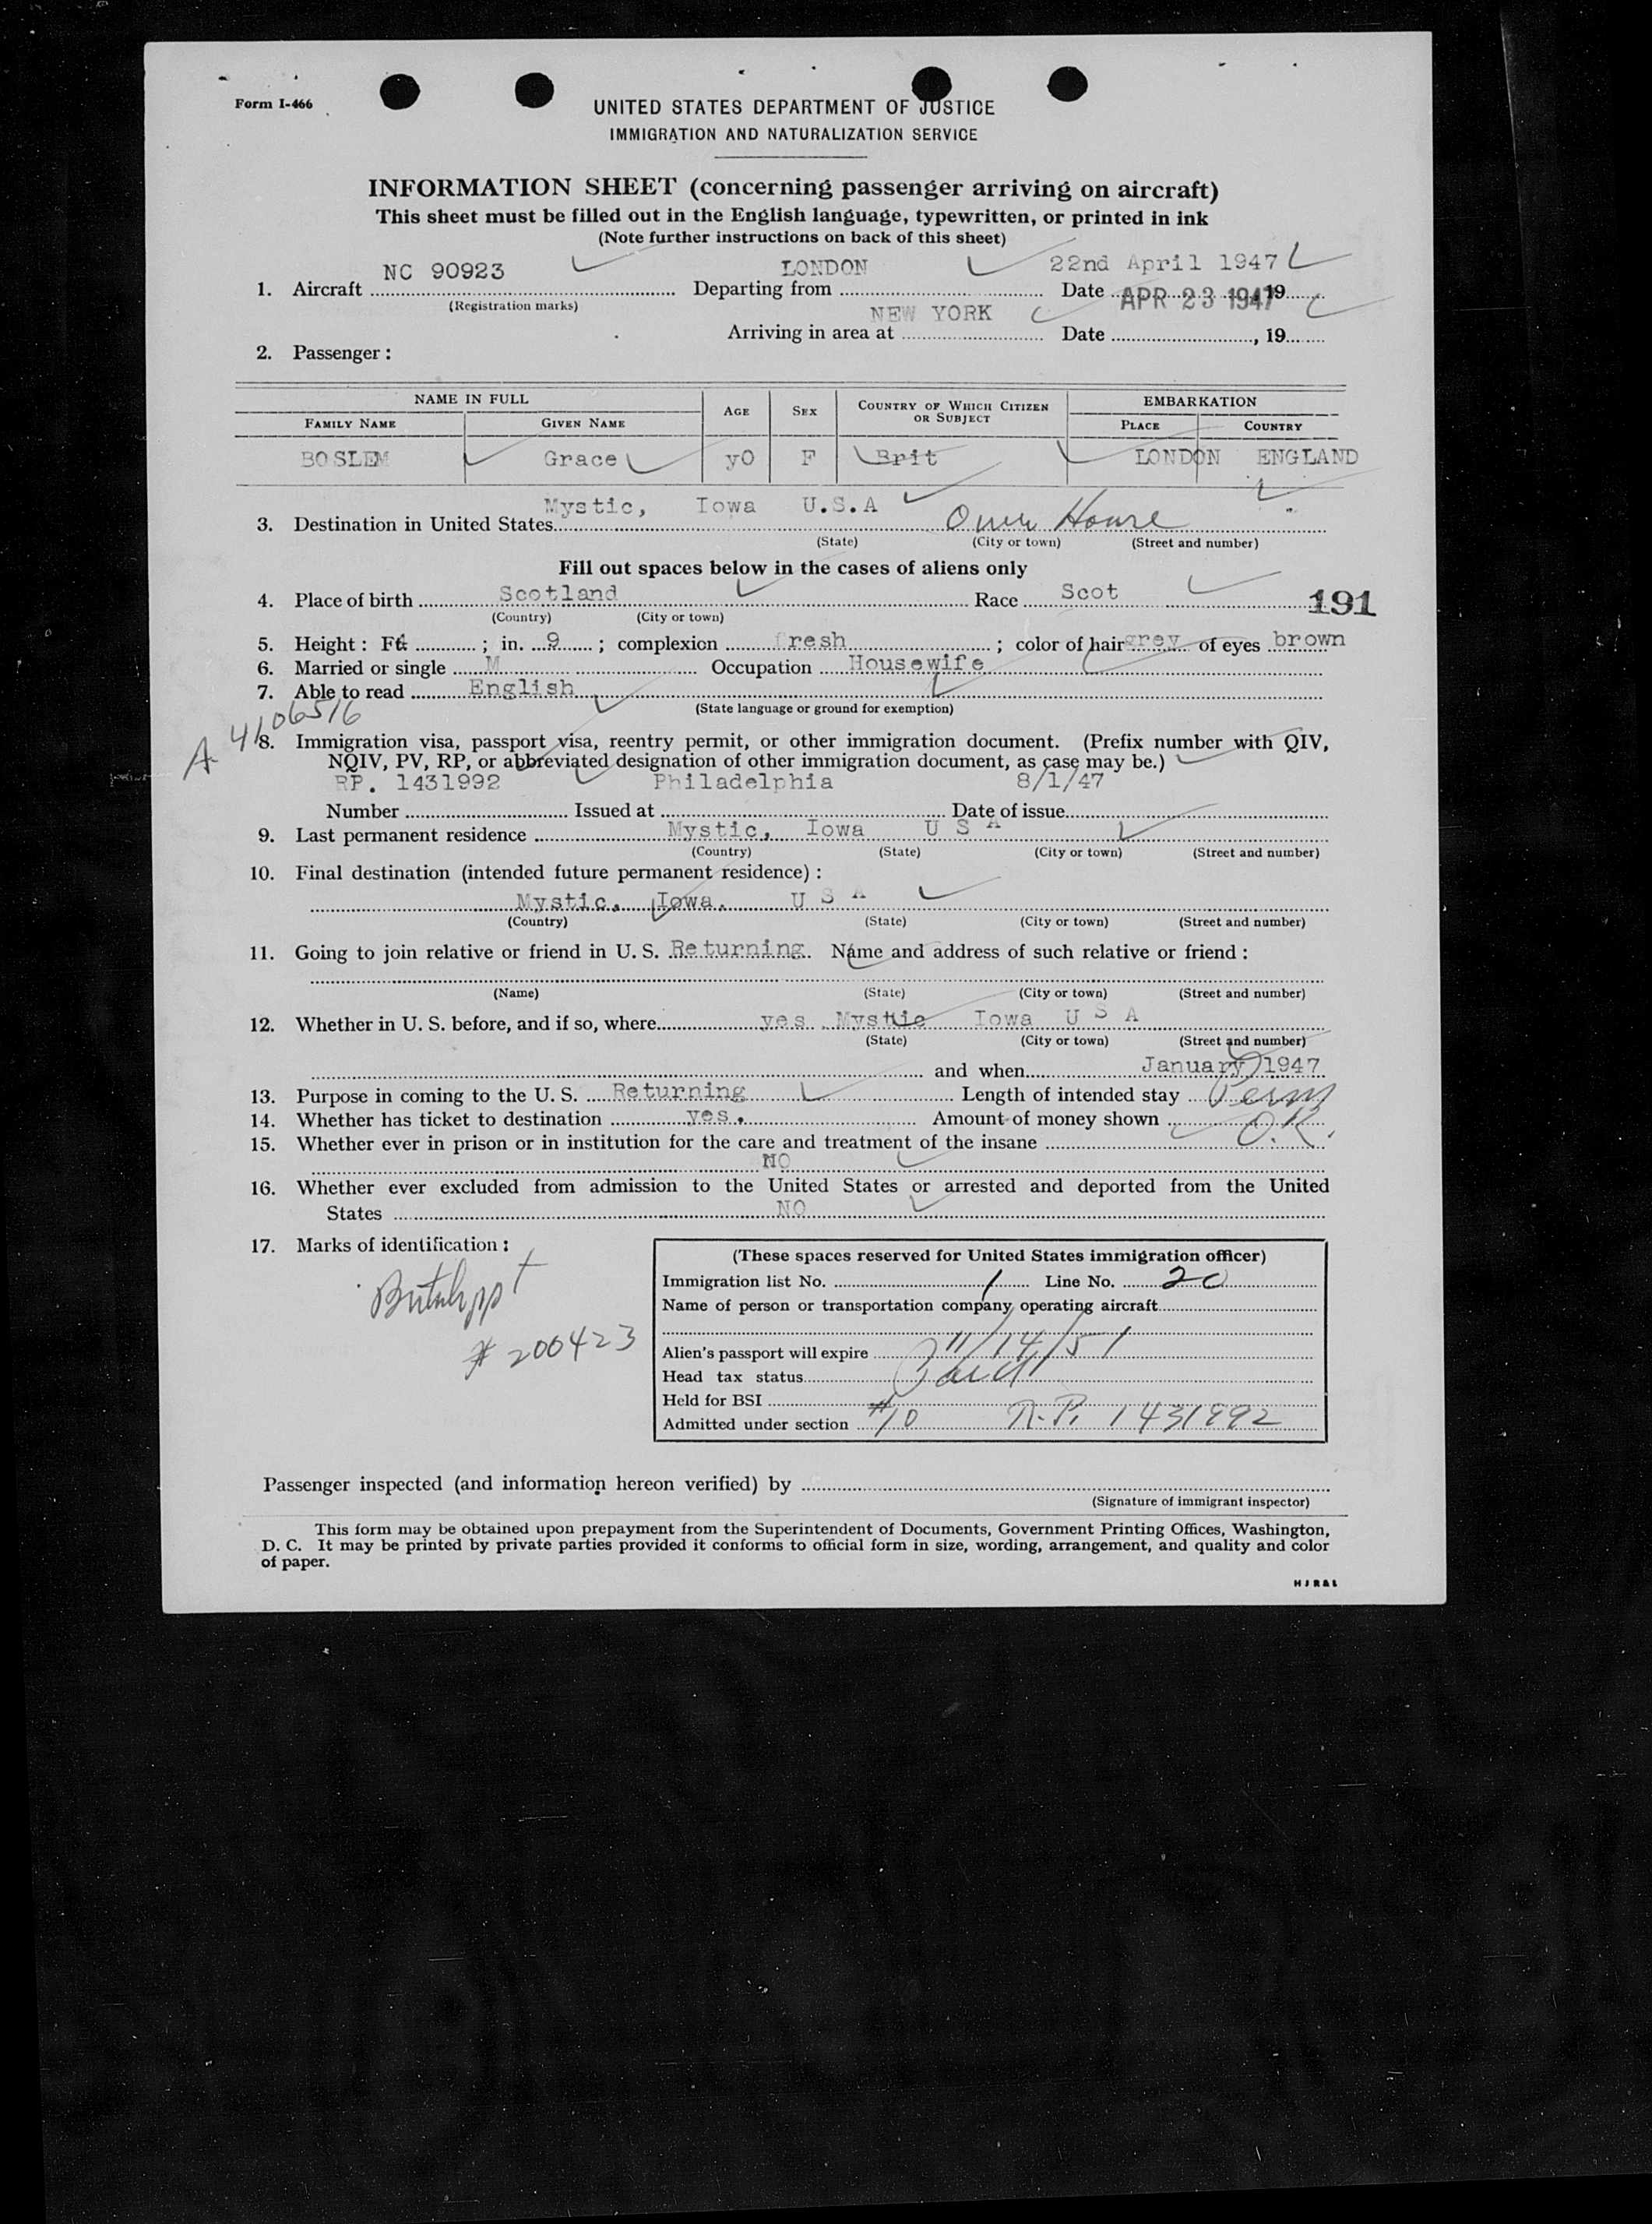 Form I-466
UNITED STATES DEPARTMENT OF JUSTICE
IMMIGRATION AND NATURALIZATION SERVICE
INFORMATION SHEET (concerning passenger arriving on aircraft)
This sheet must be filled out in the English language, typewritten, or printed in ink
(Note further instructions on back of this sheet)
1. Aircraft NC 90923 Departing from LONDON Date 22nd April 1947
(Registration marks) APR 23 1947 19
Arriving in area at NEW YORK Date , 19
2. Passenger :
NAME IN FULL AGE SEX COUNTRY OF WHICH CITIZEN OR SUBJECT EMBARKATION
FAMILY NAME GIVEN NAME PLACE COUNTRY
BOSLEM Grace yO F Brit LONDON ENGLAND
3. Destination in United States Mystic, Iowa U.S.A
(State) (City or town) (Street and number)
Fill out spaces below in the cases of aliens only
4. Place of birth Scotland Race Scot 191
(Country) (City or town)
5. Height : Ft ; in. 9 ; complexion fresh ; color of hair grey of eyes brown
6. Married or single M Occupation Housewife
7. Able to read English
(State language or ground for exemption)
A 4106516
8. Immigration visa, passport visa, reentry permit, or other immigration document. (Prefix number with QIV,
NQIV, PV, RP, or abbreviated designation of other immigration document, as case may be.)
RP. 1431992 Philadelphia 8/1/47
Number Issued at Date of issue
9. Last permanent residence Mystic, Iowa U S A
(Country) (State) (City or town) (Street and number)
10. Final destination (intended future permanent residence) :
Mystic, Iowa. U S A
(Country) (State) (City or town) (Street and number)
11. Going to join relative or friend in U. S. Returning Name and address of such relative or friend :
(Name) (State) (City or town) (Street and number)
12. Whether in U. S. before, and if so, where yes Mystic Iowa U S A
(State) (City or town) (Street and number)
and when January 1947
13. Purpose in coming to the U. S. Returning Length of intended stay Perm
14. Whether has ticket to destination yes. Amount of money shown O.K.
15. Whether ever in prison or in institution for the care and treatment of the insane
NO
16. Whether ever excluded from admission to the United States or arrested and deported from the United
States NO
17. Marks of identification :
# 200423
(These spaces reserved for United States immigration officer)
Immigration list No. 1 Line No. 20
Name of person or transportation company operating aircraft
Alien's passport will expire 11/14/51
Head tax status Paid
Held for BSI
Admitted under section #10 R.P. 1431992
Passenger inspected (and information hereon verified) by
(Signature of immigrant inspector)
This form may be obtained upon prepayment from the Superintendent of Documents, Government Printing Offices, Washington,
D. C. It may be printed by private parties provided it conforms to official form in size, wording, arrangement, and quality and color
of paper.
H J R & L